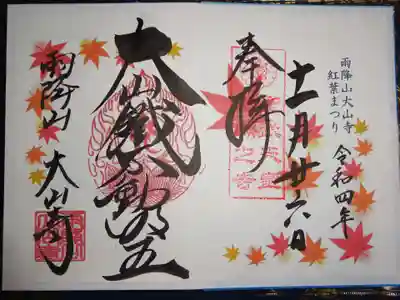 雨降山大山寺
紅葉まつり
令和四年
十一月廿六日
奉拝
大山鐵不動
雨降山
大山寺